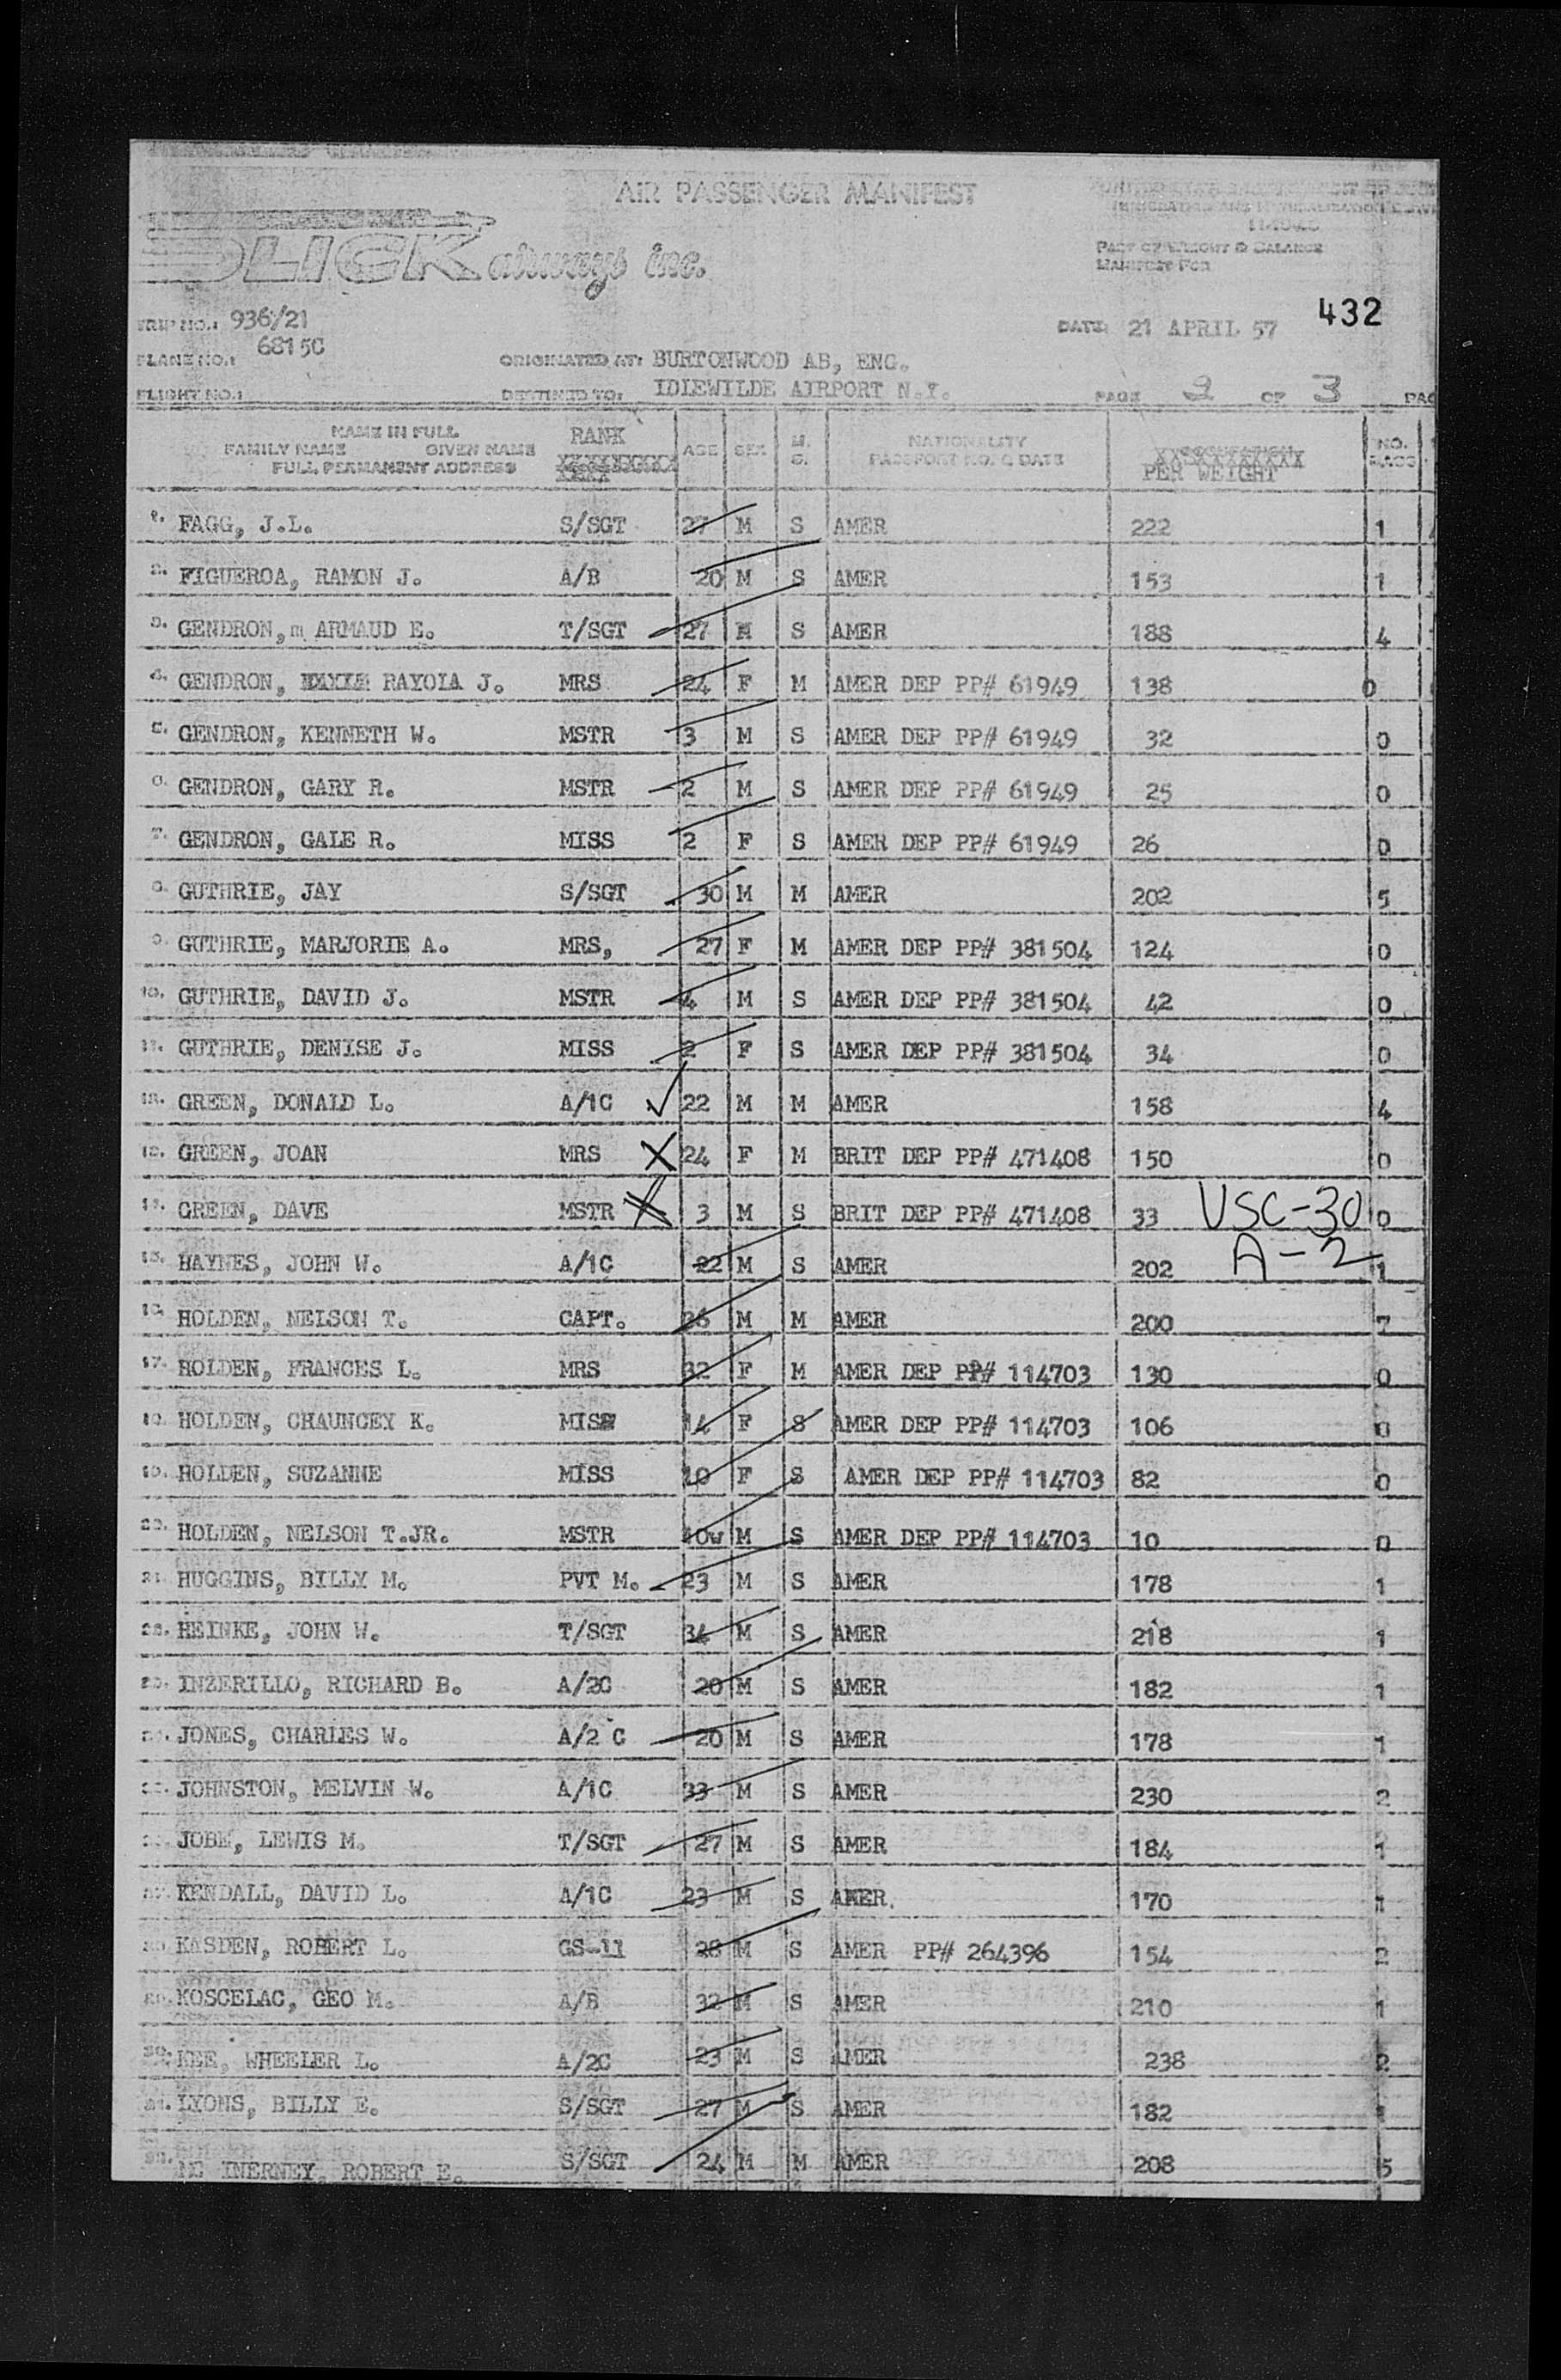 AIR PASSENGER MANIFEST
SLICK airways inc.
PART OF WEIGHT & BALANCE
MANIFEST FOR
432
TRIP NO.: 936/21
DATE: 21 APRIL 57
PLANE NO.: 6815C
ORIGINATED AT: BURTONWOOD AB, ENG.
FLIGHT NO.:
DESTINED TO: IDLEWILDE AIRPORT N.Y.
PAGE 2 OF 3
NAME IN FULL
FAMILY NAME GIVEN NAME
FULL PERMANENT ADDRESS
RANK
AGE SEX M. S.
NATIONALITY
PASSPORT NO. & DATE
PER WEIGHT
NO.
1. FAGG, J.L. S/SGT 27 M S AMER 222 1
2. FIGUEROA, RAMON J. A/B 20 M S AMER 153 1
3. GENDRON, m ARMAUD E. T/SGT 27 M S AMER 188 4
4. GENDRON, RAYOIA J. MRS 24 F M AMER DEP PP# 61949 138 0
5. GENDRON, KENNETH W. MSTR 3 M S AMER DEP PP# 61949 32 0
6. GENDRON, GARY R. MSTR 2 M S AMER DEP PP# 61949 25 0
7. GENDRON, GALE R. MISS 2 F S AMER DEP PP# 61949 26 0
8. GUTHRIE, JAY S/SGT 30 M M AMER 202 5
9. GUTHRIE, MARJORIE A. MRS, 27 F M AMER DEP PP# 381504 124 0
10. GUTHRIE, DAVID J. MSTR 4 M S AMER DEP PP# 381504 42 0
11. GUTHRIE, DENISE J. MISS 2 F S AMER DEP PP# 381504 34 0
12. GREEN, DONALD L. A/1C 22 M M AMER 158 4
13. GREEN, JOAN MRS 24 F M BRIT DEP PP# 471408 150 0
14. GREEN, DAVE MSTR 3 M S BRIT DEP PP# 471408 33 USC-30 0
15. HAYNES, JOHN W. A/1C 22 M S AMER 202 A-2 1
16. HOLDEN, NELSON T. CAPT. M M AMER 200 7
17. HOLDEN, FRANCES L. MRS 32 F M AMER DEP PP# 114703 130 0
18. HOLDEN, CHAUNCEY K. MISS 14 F S AMER DEP PP# 114703 106 0
19. HOLDEN, SUZANNE MISS 10 F S AMER DEP PP# 114703 82 0
20. HOLDEN, NELSON T.JR. MSTR 10w M S AMER DEP PP# 114703 10 0
21. HUGGINS, BILLY M. PVT M. 23 M S AMER 178 1
22. HEINKE, JOHN W. T/SGT 34 M S AMER 218 1
23. INZERILLO, RICHARD B. A/2C 20 M S AMER 182 1
24. JONES, CHARLES W. A/2 C 20 M S AMER 178 1
25. JOHNSTON, MELVIN W. A/1C 33 M S AMER 230 2
26. JOBE, LEWIS M. T/SGT 27 M S AMER 184 1
27. KENDALL, DAVID L. A/1C 23 M S AMER. 170 1
28. KASDEN, ROBERT L. GS-11 28 M S AMER PP# 264396 154 2
29. KOSCELAC, GEO M. A/B 32 M S AMER 210 1
30. KEE, WHEELER L. A/2C 23 M S AMER 238 2
31. LYONS, BILLY E. S/SGT 27 M S AMER 182 1
32. MC INERNEY, ROBERT E. S/SGT 24 M M AMER 208 5